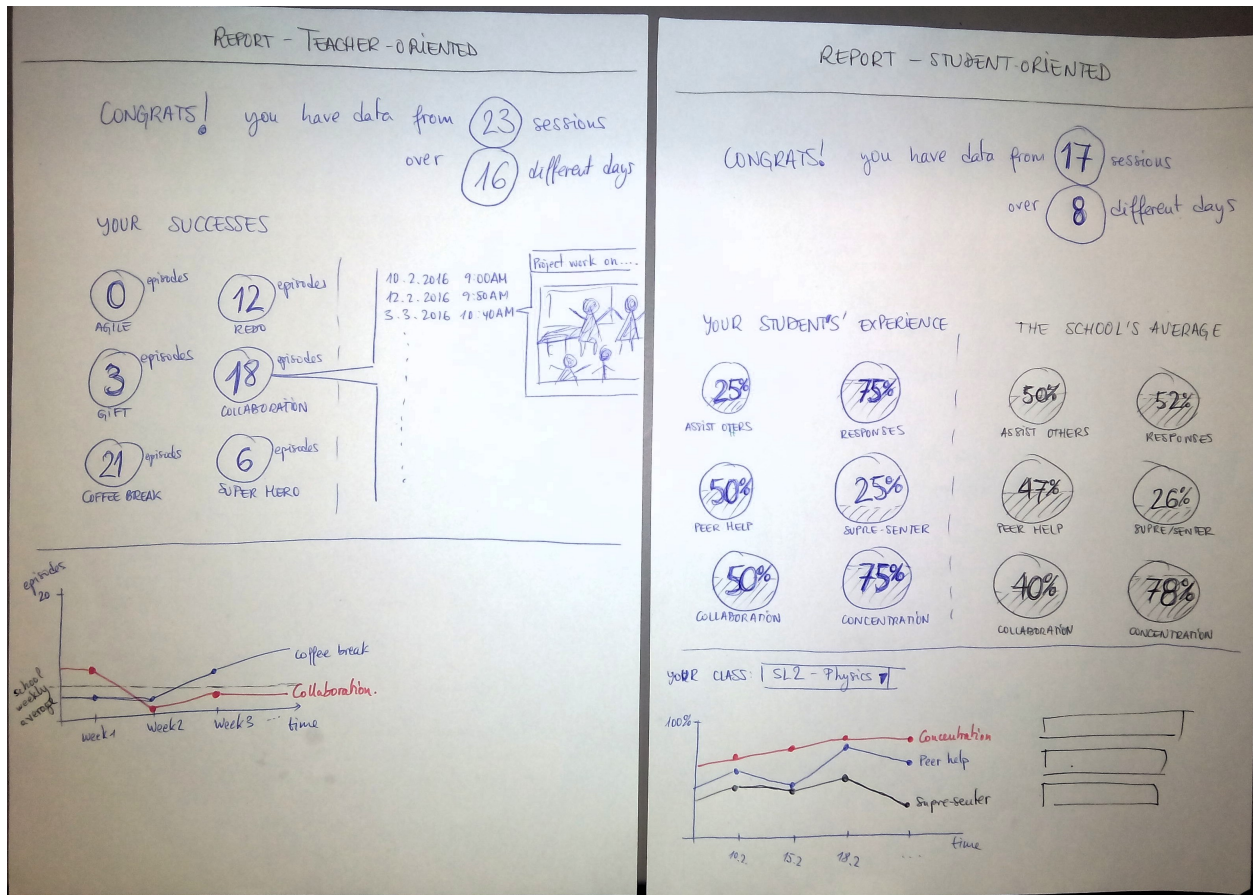 REPORT - TEACHER-ORIENTED
CONGRATS! you have data from 23 sessions
over 16 different days
YOUR SUCCESSES
0 episodes
AGILE
12 episodes
REDO
3 episodes
GIFT
18 episodes
COLLABORATION
21 episodes
COFFEE BREAK
6 episodes
SUPER HERO
10.2.2016 9:00AM
12.2.2016 9:50AM
3.3.2016 10:40AM
Project work on....
episodes
20
school
weekly
average
coffee break
Collaboration.
week1 week2 week3 ... time
REPORT - STUDENT-ORIENTED
CONGRATS! you have data from 17 sessions
over 8 different days
YOUR STUDENTS' EXPERIENCE
25%
ASSIST OTERS
75%
RESPONSES
50%
PEER HELP
25%
SUPRE-SENTER
50%
COLLABORATION
75%
CONCENTRATION
THE SCHOOL'S AVERAGE
50%
ASSIST OTHERS
52%
RESPONSES
47%
PEER HELP
26%
SUPRE/SENTER
40%
COLLABORATION
78%
CONCENTRATION
YOUR CLASS: SL2 - Physics
100%
Concentration
Peer help
Supre-senter
10.2. 15.2 18.2 .... time